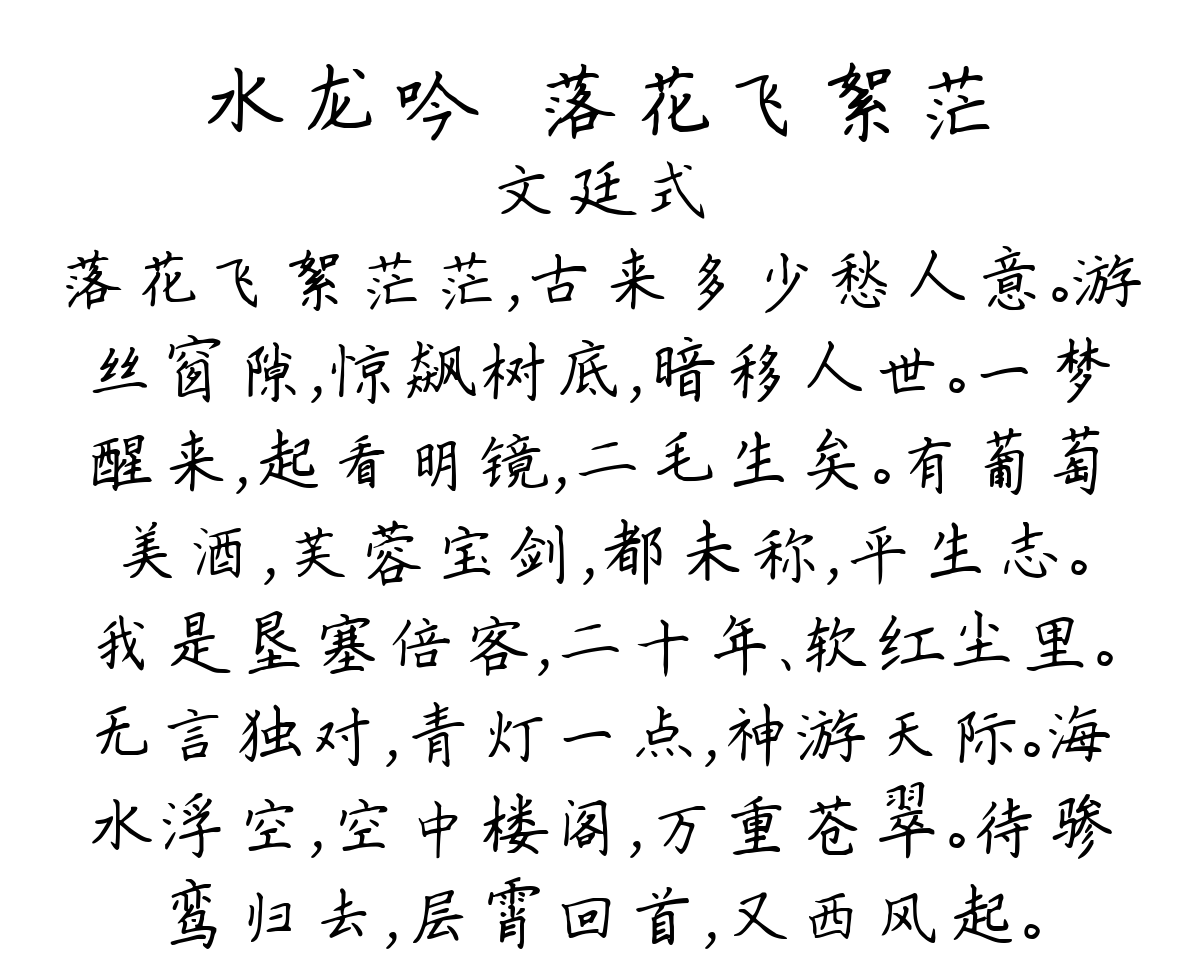 水龙吟 落花飞絮茫
文廷式
落花飞絮茫茫,古来多少愁人意。游
丝窗隙,惊飙树底,暗移人世。一梦
醒来,起看明镜,二毛生矣。有葡萄
美酒,芙蓉宝剑,都未称,平生志。
我是垦塞倍客,二十年、软红尘里。
无言独对,青灯一点,神游天际。海
水浮空,空中楼阁,万重苍翠。待骖
鸾归去,层霄回首,又西风起。